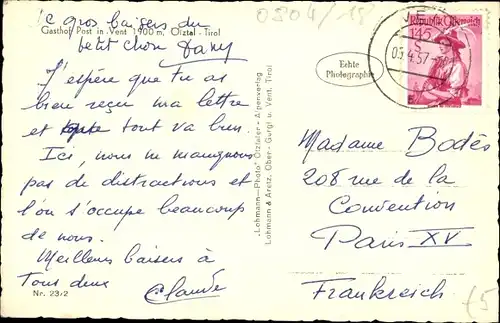 0804/18
ic gros baisers du
petit chou Dany
Gasthof Post in Vent 1900 m, Ötztal - Tirol
J'espère que tu as
bien reçu ma lettre
et que tout va bien.
Ici, nous ne manquons
pas de distractions et
l'on s'occupe beaucoup
de nous.
Meilleurs baisers à
tous deux
Claude
Nr. 23/2
"Lohmann-Photo" Ötztaler - Alpenverlag
Lohmann & Aretz, Ober - Gurgl u. Vent, Tirol
Echte
Photographie
Republik Österreich
145
S
Madame Bodès
208 rue de la
Convention
Paris XV
Frankreich